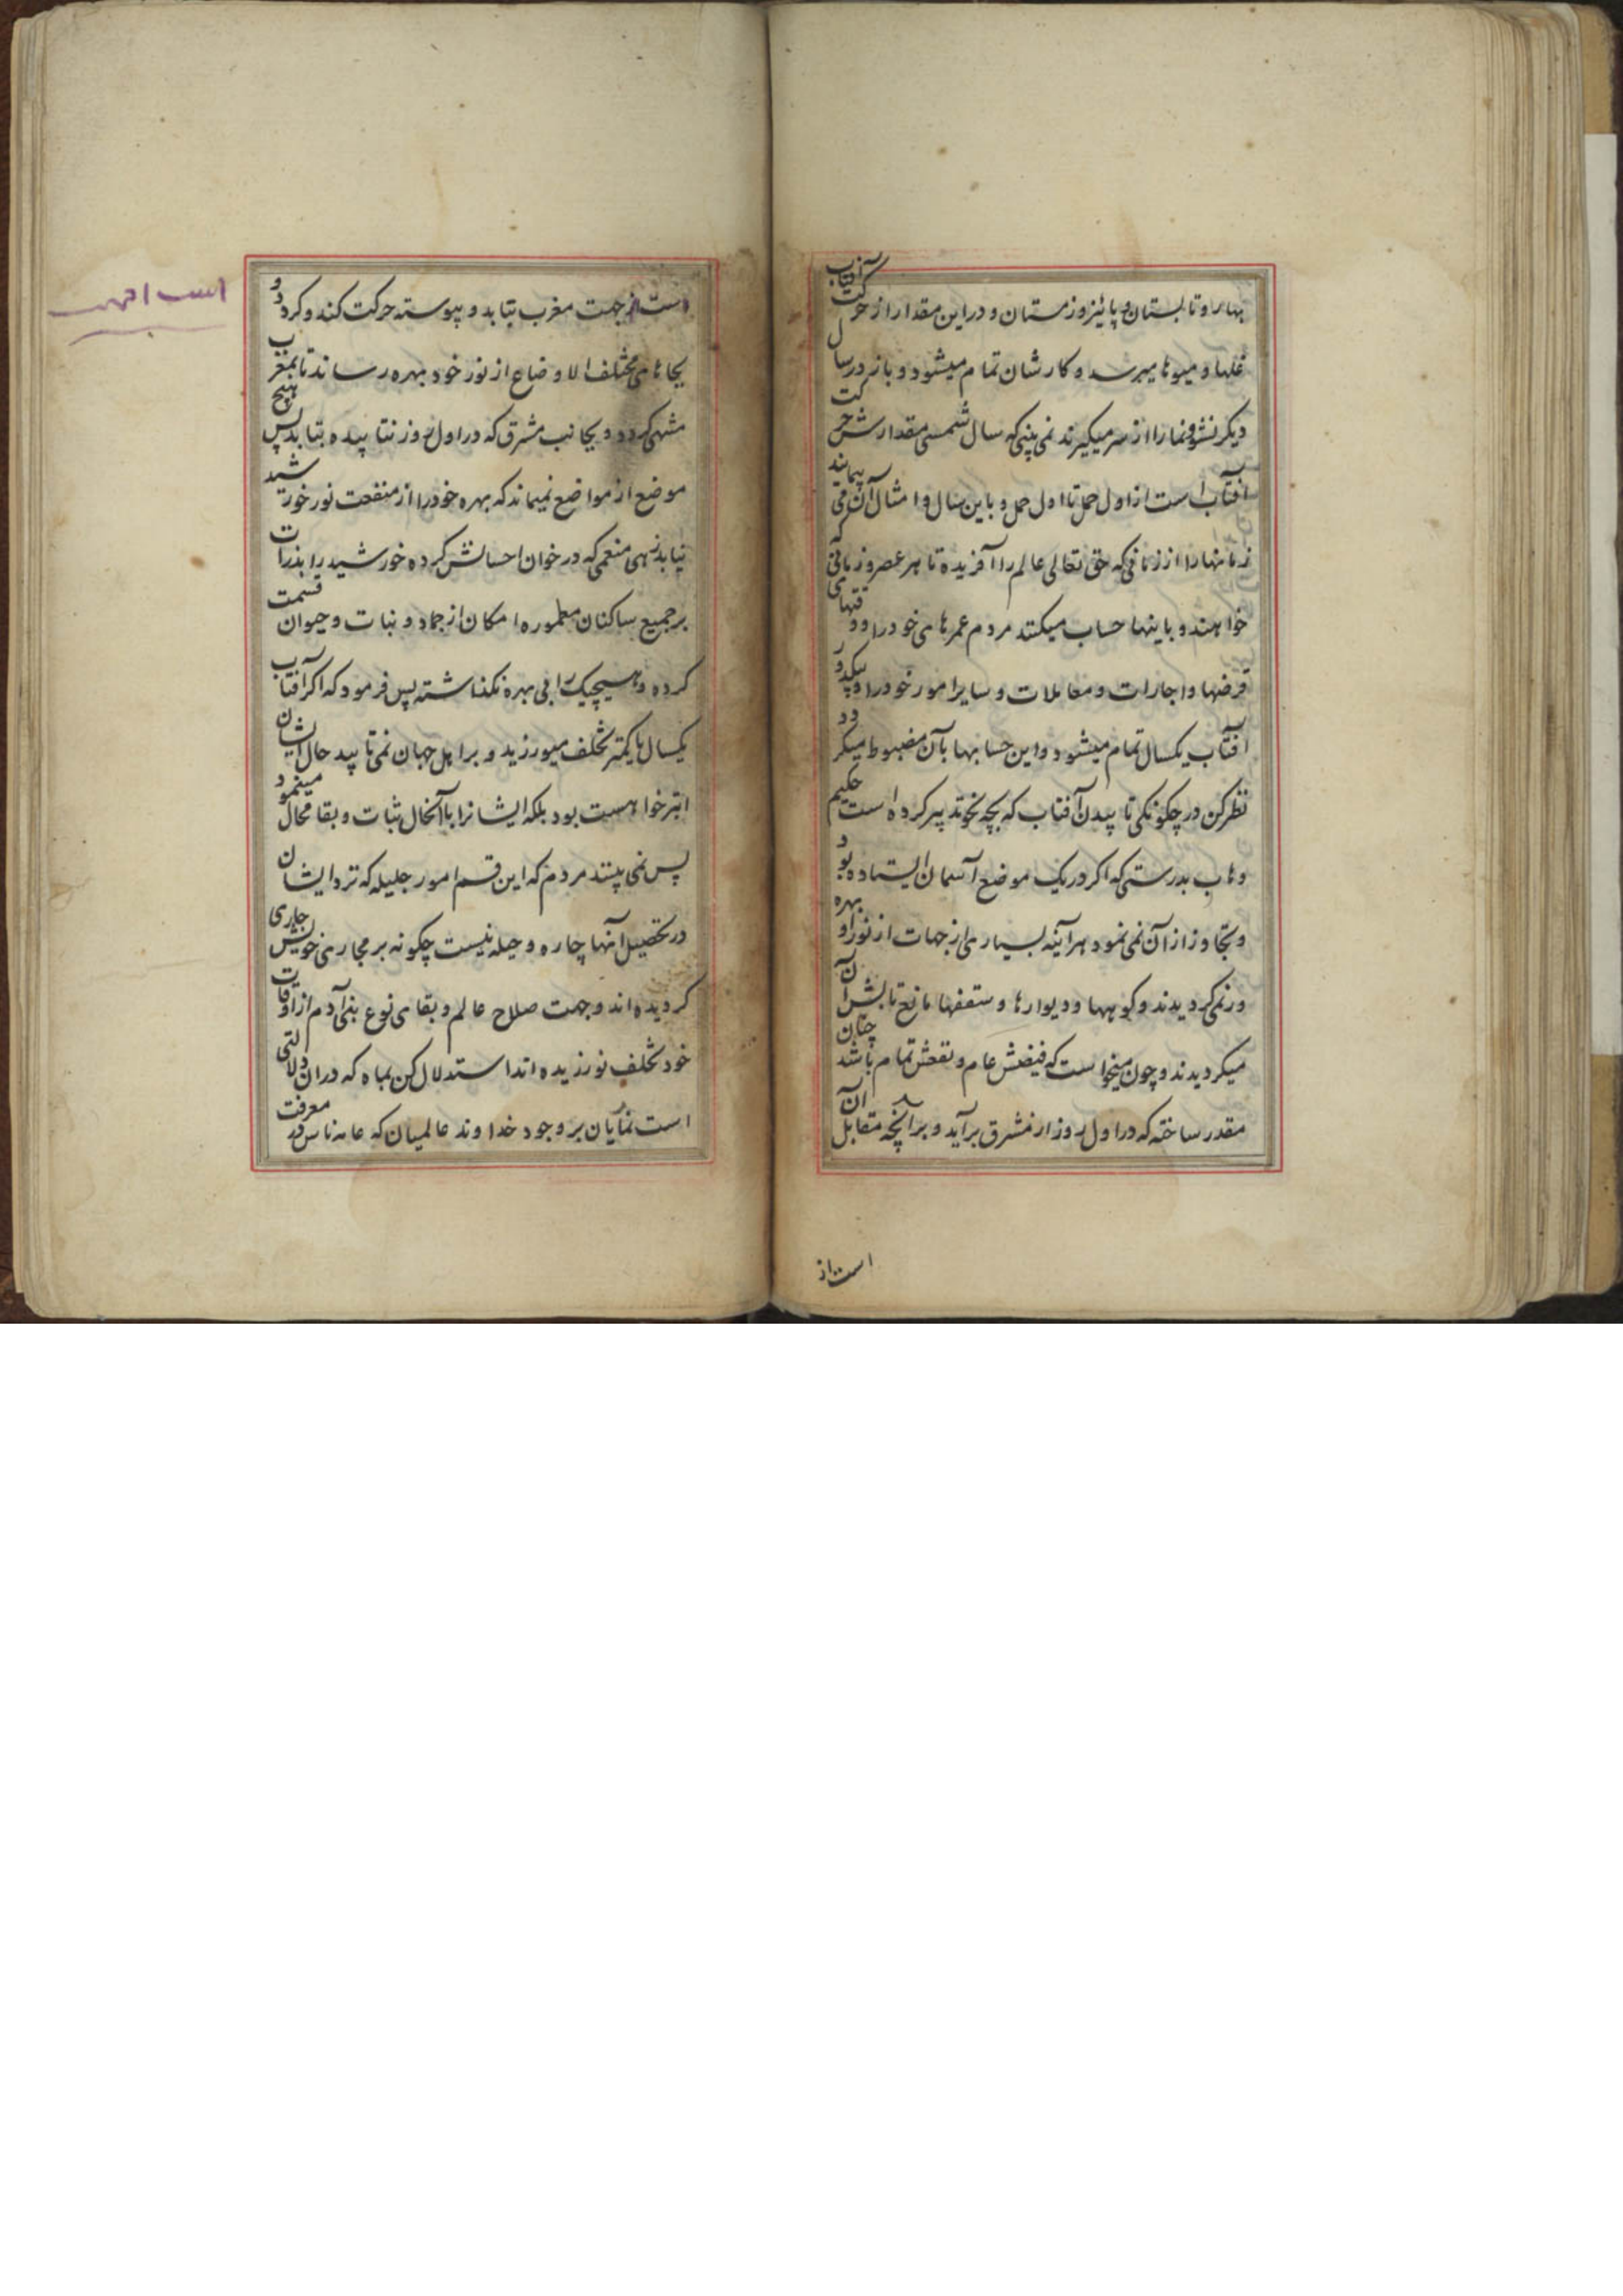 بهار و تابستان و پائیز و زمستان و در این مقدار از حرکت آفتاب
غلها و میوها میرسد و کارشان تمام میشود و باز در سال
دیکر نشو و نما را از سر میکیرند نمی بینی که سال شمسی مقدارش حرکت
آفتاب است از اول حمل تا اول حمل و باین سال و امثال آن می پیمایند
زمانها را از زمانی که حق تعالی عالم را آفریده تا هر عصر و زمانی که
خواهند و باینها حساب میکنند مردم عمرهای خود را و وقتهای
قرضها و اجارات و معاملات و سایر امور خود را و بیکدور
آفتاب یکسال تمام میشود و این حسابها بآن مضبوط میکردد
نظر کن در چکونکی تابیدن آفتاب که بچه نحو تدبیر کرده است حکیم
وهاب بدرستی که اکر در یک موضع آسمان ایستاده بود
و تجاوز از آن نمی نمود هرآینه بسیاری از جهات از نور او بهره
ور نمی کردیدند و کوهها و دیوارها و سقفها مانع تابش آن
میکردیدند و چون میخواست که فیضش عام و نفعش تمام باشد چنان
مقدر ساخته که در اول روز از مشرق برآید و بر آنچه مقابل آن
است از
است از جهت مغرب بتابد و پیوسته حرکت کند و کردد و
بجاهای مختلف الاوضاع از نور خود بهره رساند تا بمغرب
منتهی کردد و بجانب مشرق که در اول روز نتابیده بتابد پس هیچ
موضع از مواضع نمیماند که بهره خود را از منفعت نور خورشید
نیابد زهی منعمی که در خوان احسانش کرده خورشید را بذرات
بر جمیع ساکنان معموره امکان از جماد و نبات و حیوان قسمت
کرده و هیچیک را بی بهره نکذاشته پس فرمود که اکر آفتاب
یکسال یا کمتر تخلف میورزید و بر اهل جهان نمی تابید حال ایشان
ابتر خواهست بود بلکه ایشانرا با آنحال ثبات و بقا محال مینمود
پس نمی بینند مردم که این قسم امور جلیله که نزد ایشان
در تحصیل آنها چاره و حیله نیست چکونه بر مجاری خویش جاری
کردیده اند و جهت صلاح عالم و بقای نوع بنی آدم از اوقات
خود تخلف نورزیده اند استدلال کن بماه که در آن دلالتی
است نمایان بر وجود خداوند عالمیان که عامه ناس در معرفت